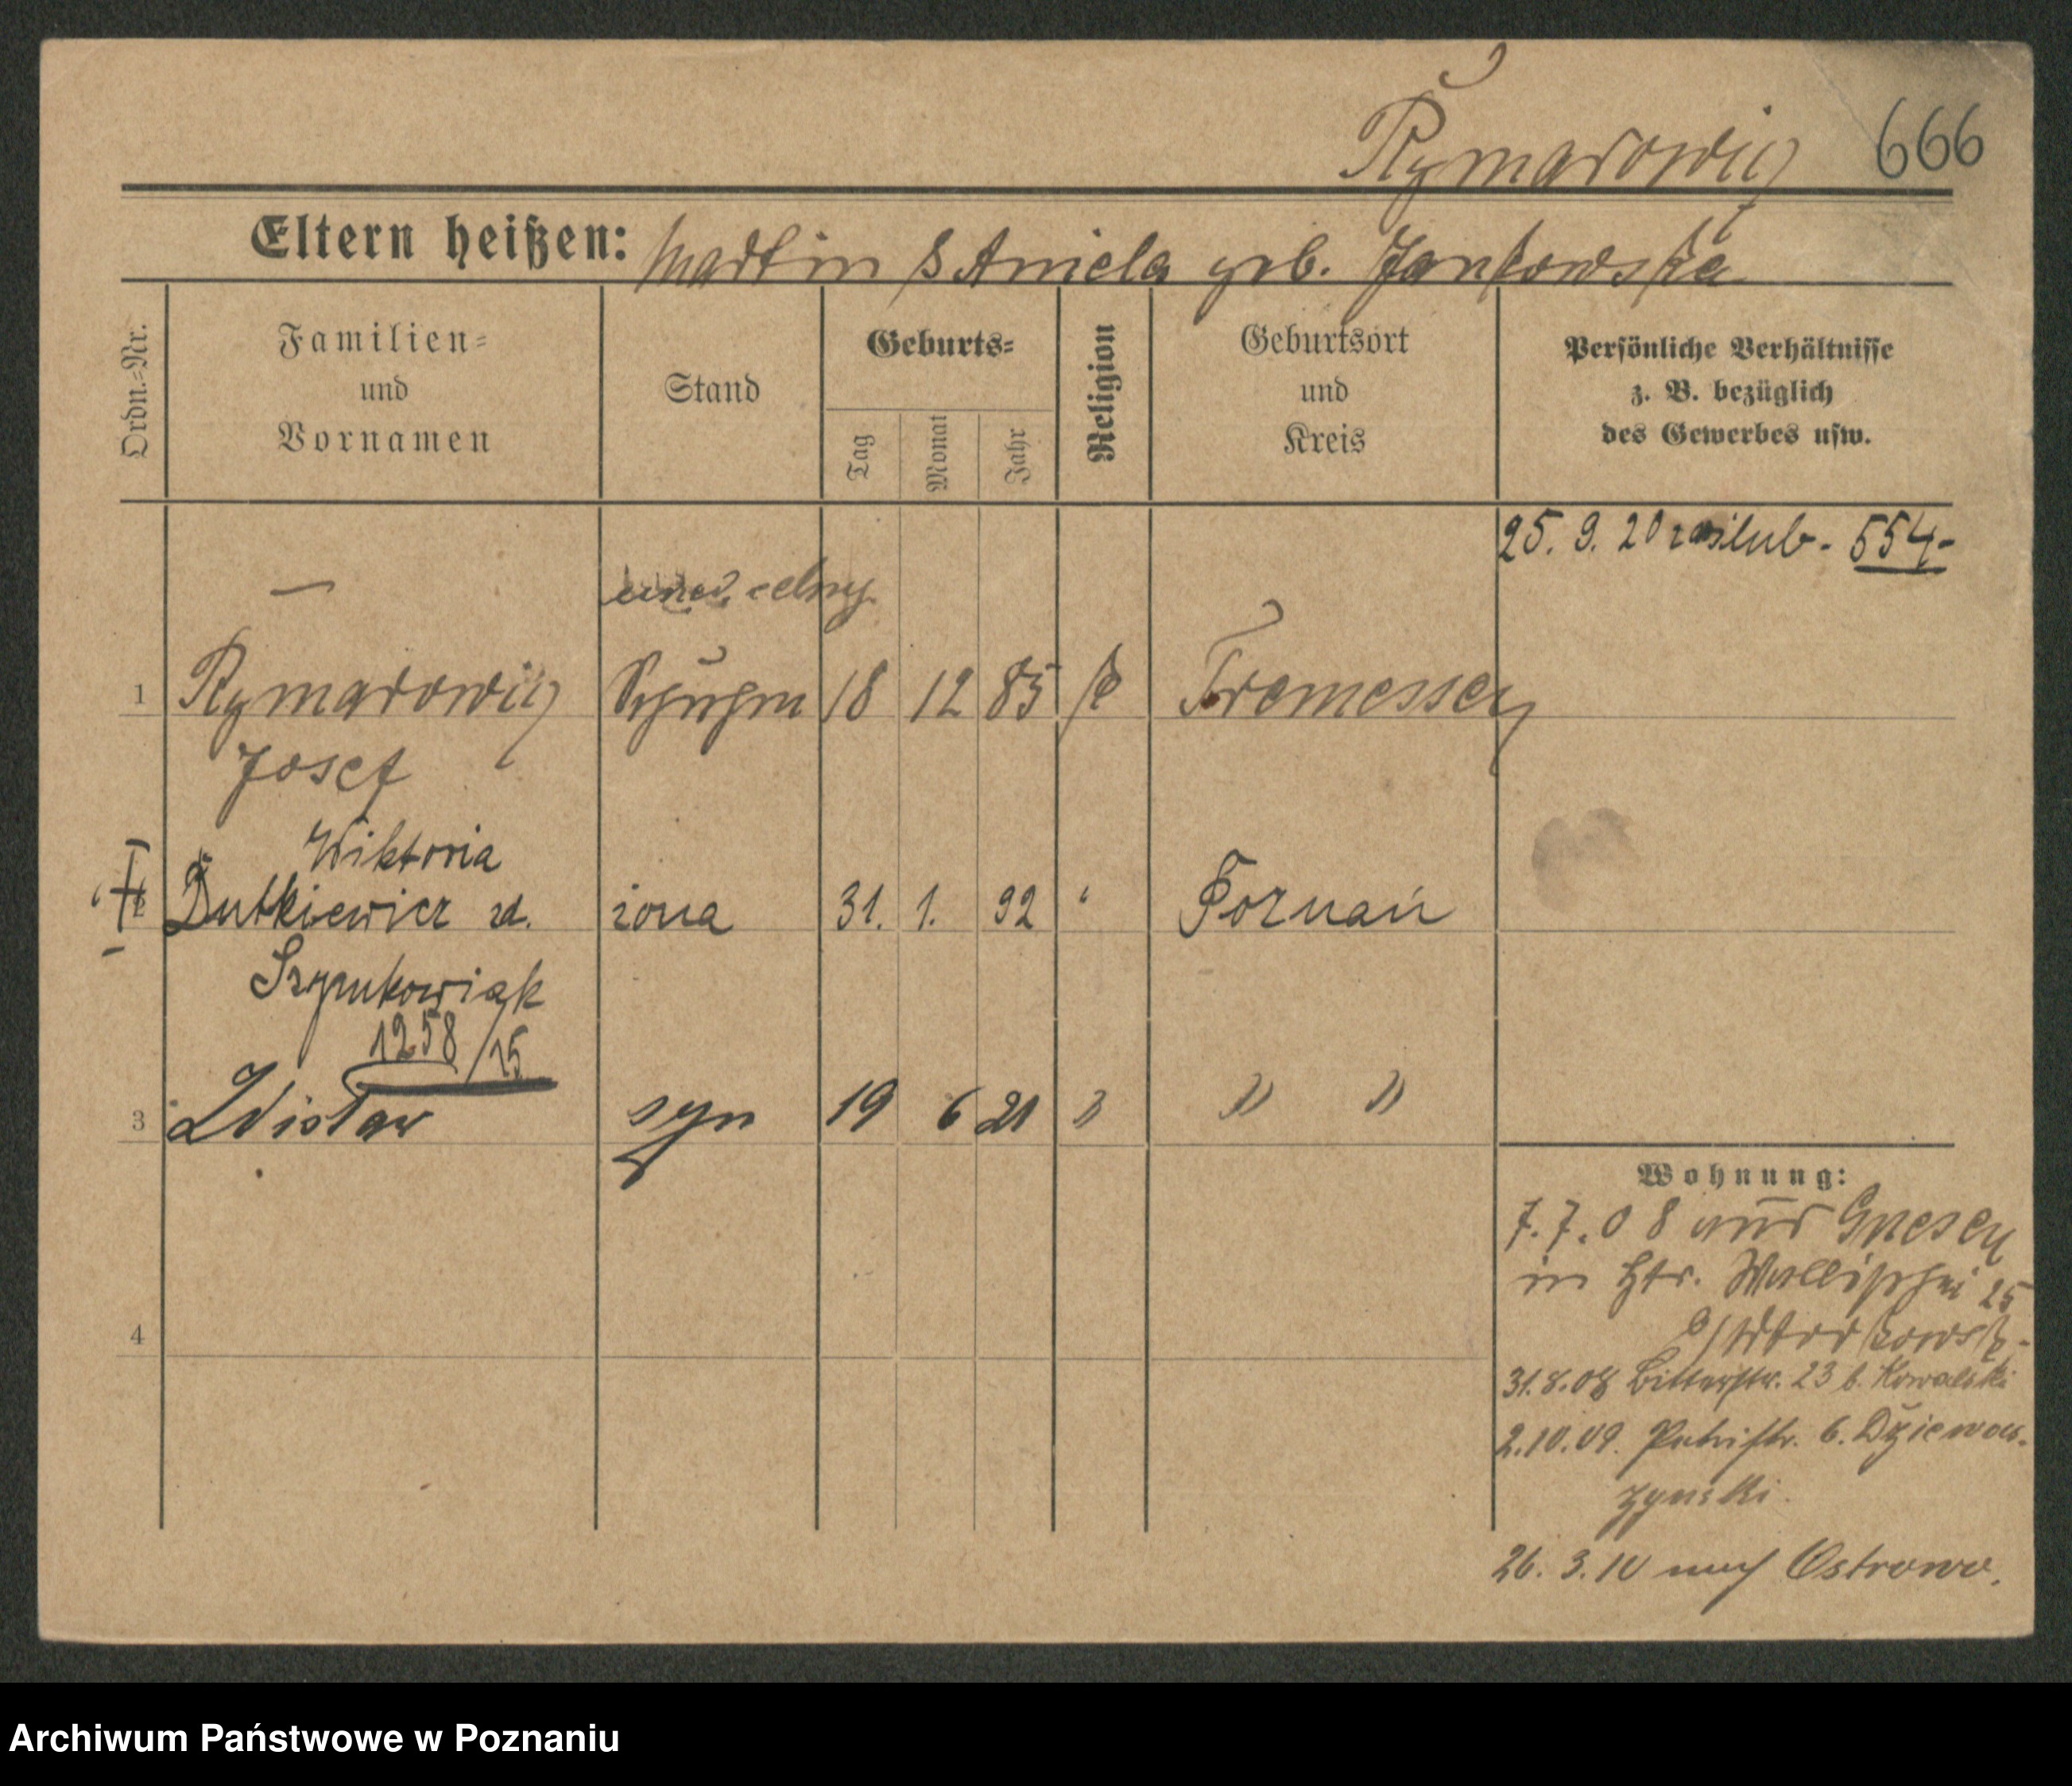 Rymarowicz 666
Eltern heißen: Martin & Aniela geb. Jankowska
Ordn.-Nr.
Familien-
und
Vornamen
Stand
Geburts-
Tag
Monat
Jahr
Religion
Geburtsort
und
Kreis
Persönliche Verhältnisse
z. B. bezüglich
des Gewerbes usw.
25. 9. 20 zaślub. 554.
1 Rymarowicz 18 12 85 k Tremessen
Josef
Wiktoria
Dutkiewicz zd. żona 31. 1. 92 " Poznań
Szymkowiak
1258/15
3 Zdisław syn 19 6 21 " " "
Wohnung:
7.7.08 aus Gnesen
in Htr. Wallischei 25
31.8.08 Bitterstr. 23 b. Kowalski
2.10.09. Petristr. 6. Dziewas-
zynski.
4
26. 3. 10 nach Ostrowo.
Archiwum Państwowe w Poznaniu